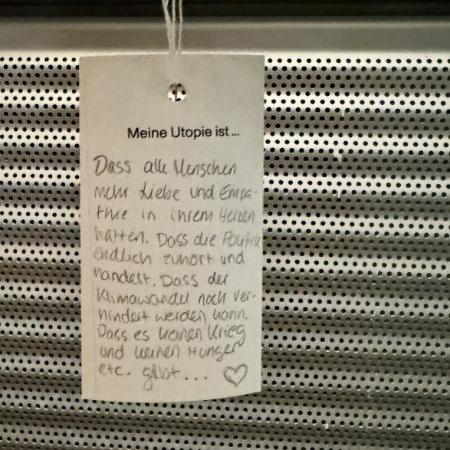 Meine Utopie ist...
Dass alle Menschen
mehr Liebe und Empa-
thie in ihrem Herzen
hätten. Dass die Politik
endlich zuhört und
handelt. Dass der
Klimawandel noch ver-
hindert werden kann.
Dass es keinen Krieg
und keinen Hunger
etc. gibt... ♡